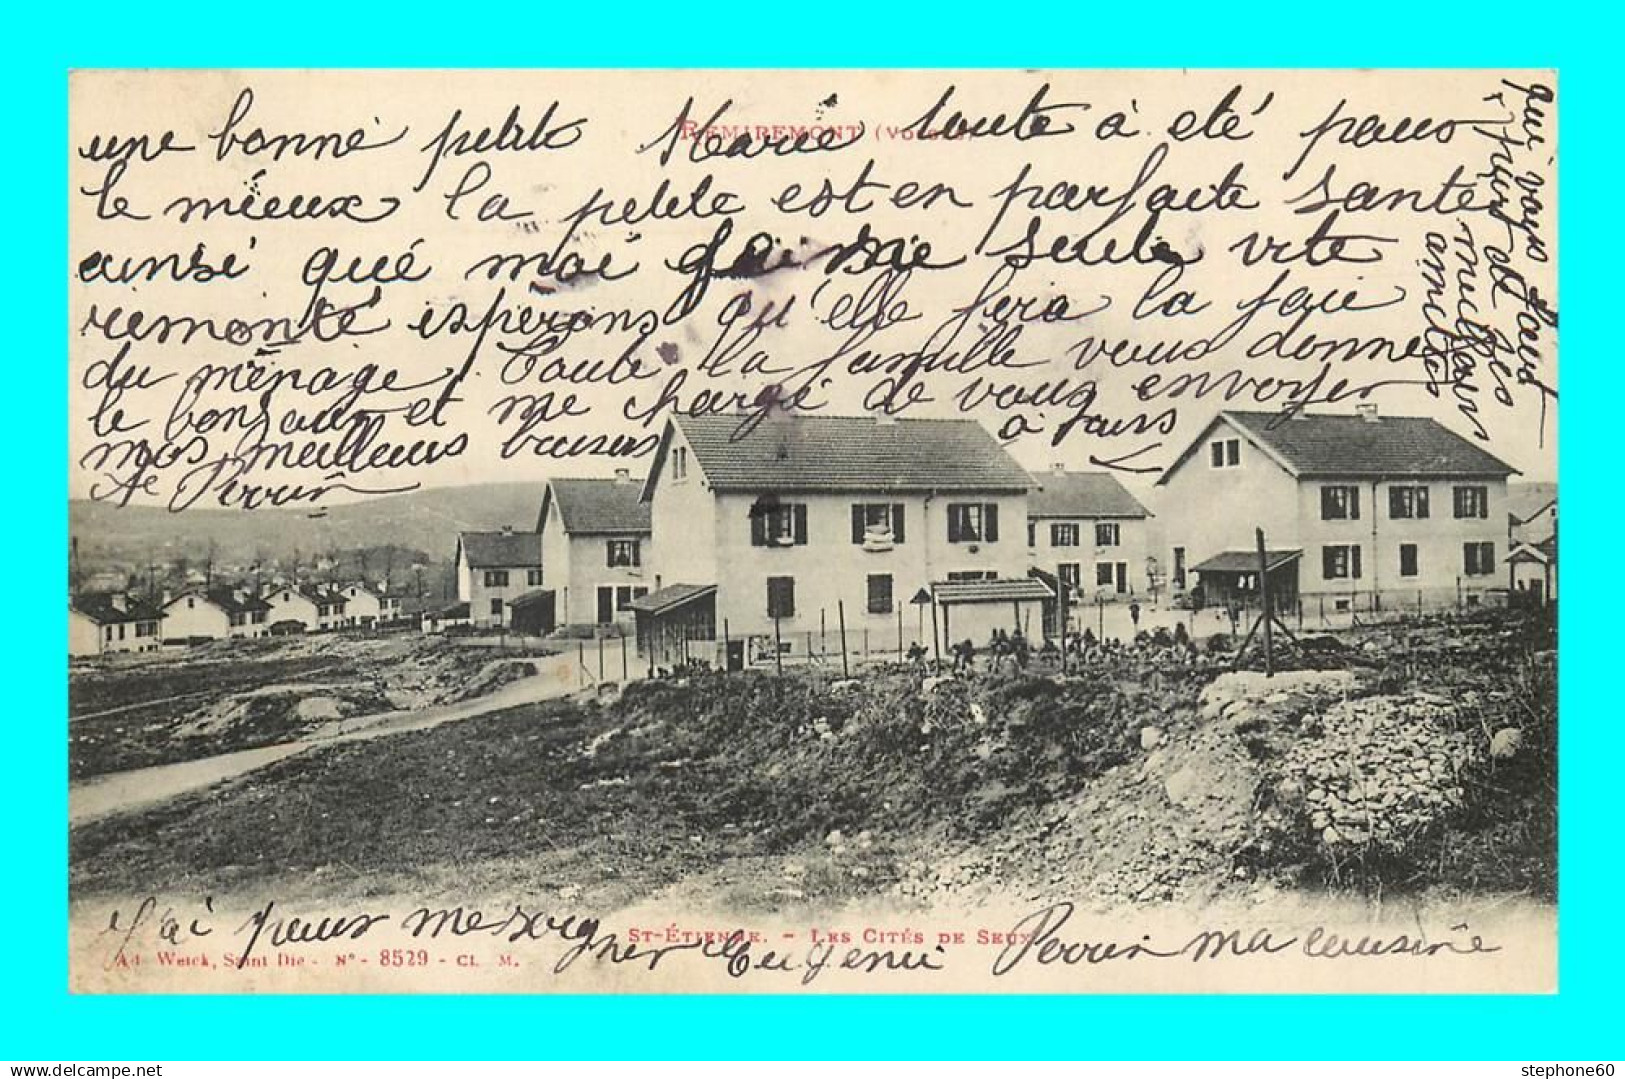 REMIREMONT (Vosges)
une bonne petite Marie toute à été pour
le mieux la petite est en parfaite santé
ainsi que moi seule vite
remonté esperons qu'elle fera la joie
du ménage. Toute la famille vous donne
le bonjour et me charge de vous envoyer
mos meilleurs baisers à tous
Perrin
qui vous
de ces
meilleurs
amitiés
J'ai pour me soigner Eugenie Perrin ma cousine
ST-ÉTIENNE. - LES CITÉS DE SEUX
Ad. Weick, Saint Dié - N° - 8529 - CL. M.
stephone60